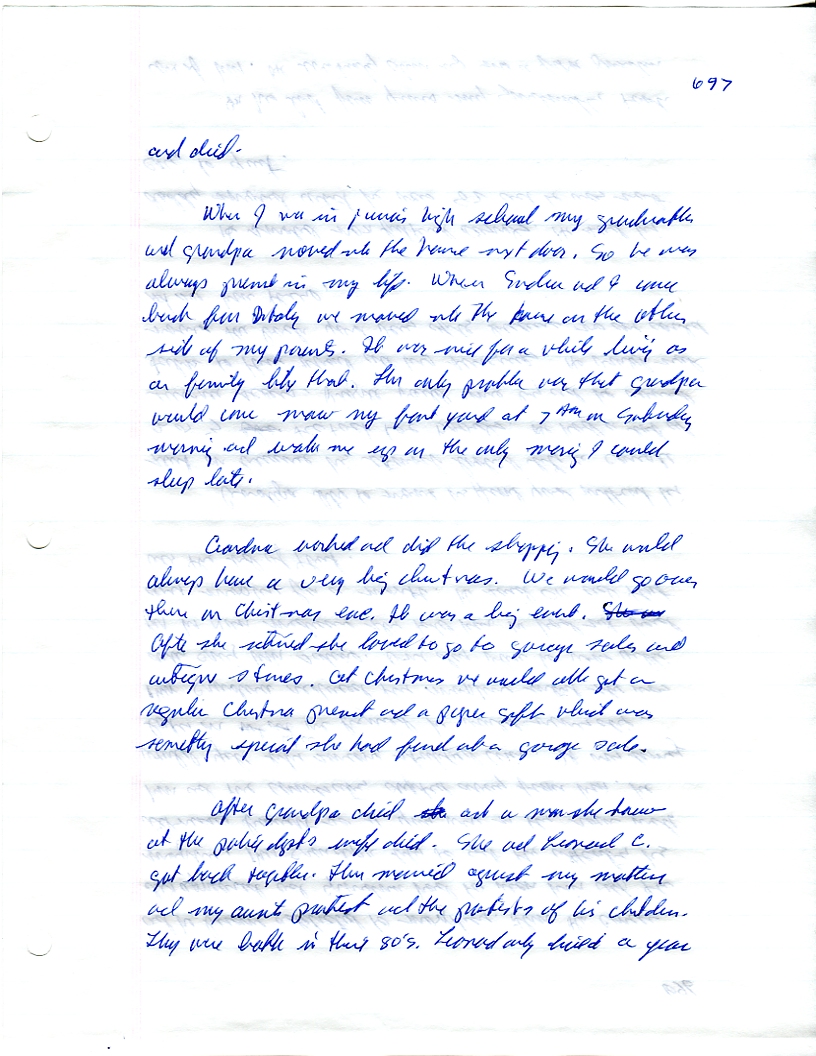 697
and died.
When I was in junior high school my grandmother
and grandpa moved into the house next door. So he was
always present in my life. When and I came
back from Italy we moved into the house on the other
side of my parents. It was nice for a while living as
a family like that. The only problem was that grandpa
would come mow my front yard at 7 AM on Saturday
morning and wake me up on the only morning I could
sleep late.
Grandma worked and did the shopping. She would
always have a very big christmas. We would go over
there on Christmas eve. It was a big event.
After she retired she loved to go to garage sales and
antique stores. At Christmas we would all get a
regular Christmas present and a gift which was
something special she had found at a garage sale.
After grandpa died and a man she knew
at the wife died. She and Leonard C.
got back together. They married against my mother
and my aunts protest and the protests of his children.
They were both in their 80's. Leonard only lived a year